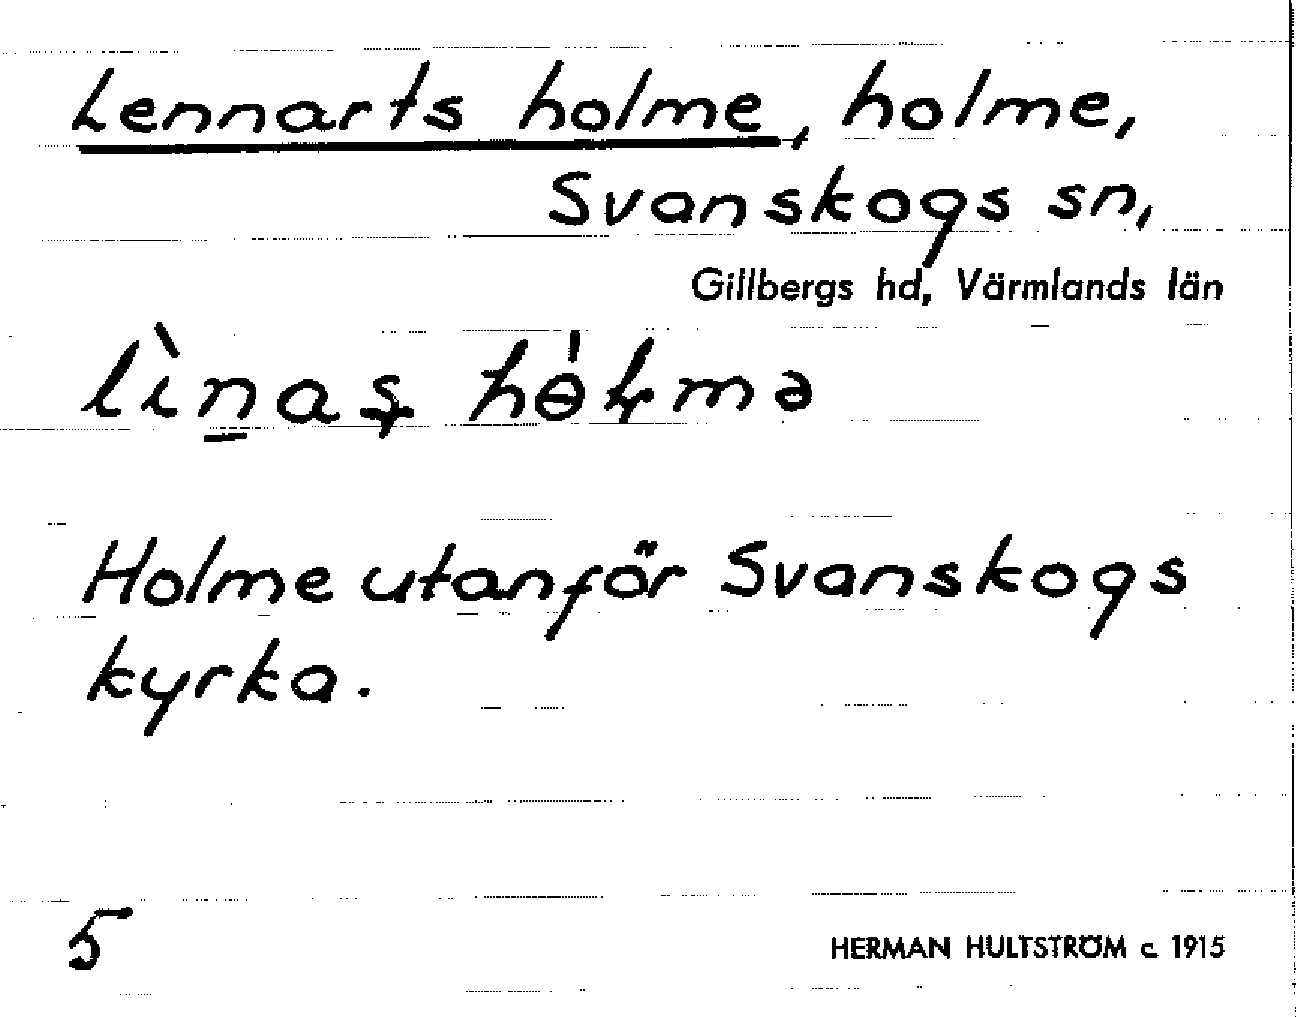 Lennarts holme, holme,
Svanskogs sn,
Gillbergs hd, Värmlands län
Holme utanför Svanskogs
kyrka.
5
HERMAN HULTSTRÖM c. 1915